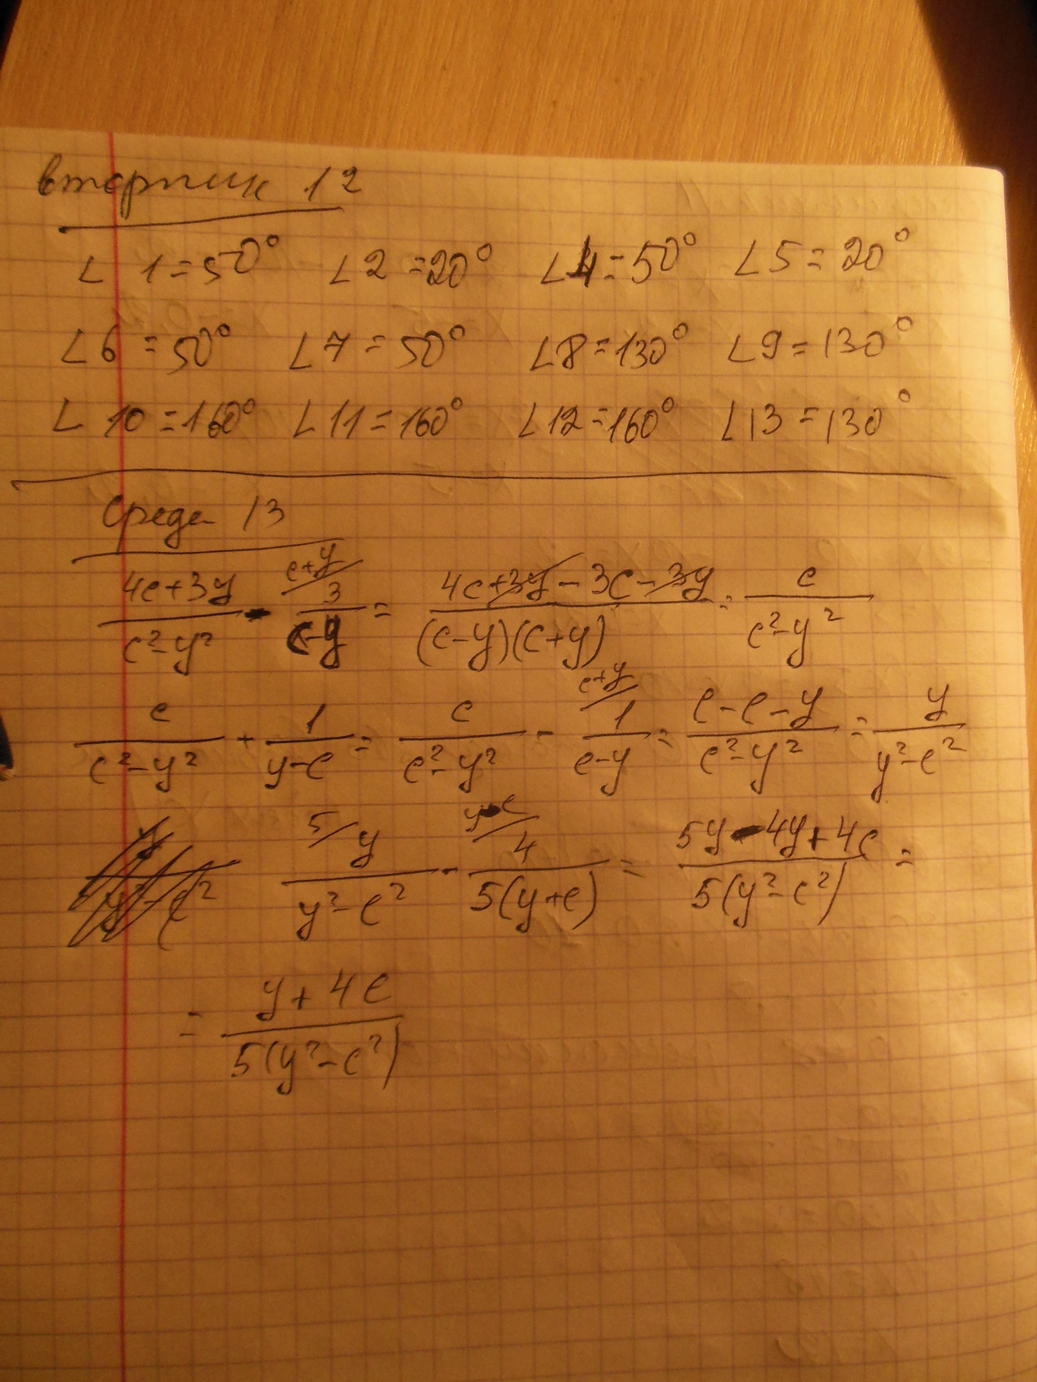 вторник 12
∠ 1 = 50° ∠2 = 20° ∠4 = 50° ∠5 = 20°
∠6 = 50° ∠7 = 50° ∠8 = 130° ∠9 = 130°
∠10 = 160° ∠11 = 160° ∠12 = 160° ∠13 = 130°
Среда 13
(4c+3y)/(c²-y²) - c+y/ 3/(c-y) = (4c+3y-3c-3y)/((c-y)(c+y)) = c/(c²-y²)
c/(c²-y²) + 1/(y-c) = c/(c²-y²) - c+y/ 1/(c-y) = (c-c-y)/(c²-y²) = y/(y²-c²)
5/ y/(y²-c²) - y-c/ 4/(5(y+c)) = (5y-4y+4c)/(5(y²-c²)) =
= (y+4c)/(5(y²-c²))